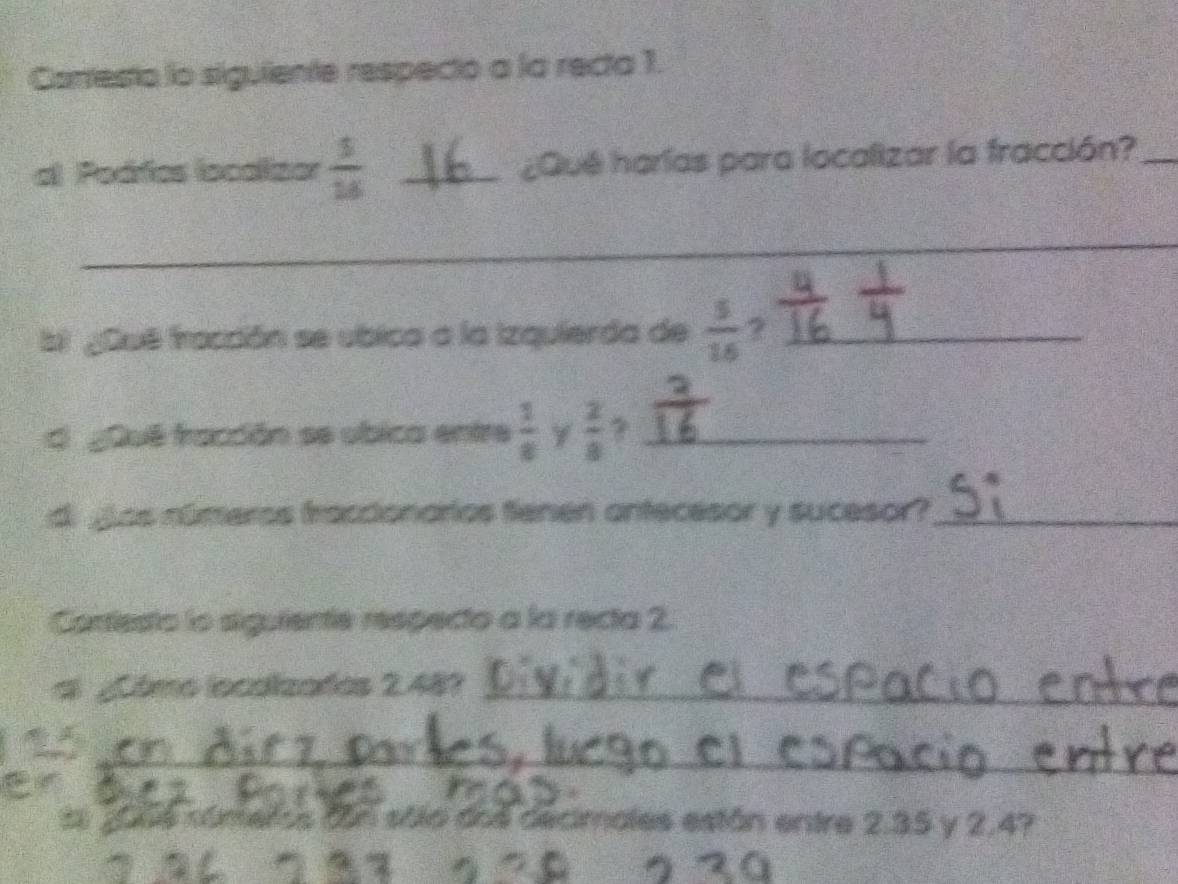 Contesta lo siguiente respecto a la recta 1.
a) Podrías localizar 5/16 16 ¿Qué harías para localizar la fracción?
b) ¿Qué fracción se ubica a la izquierda de 5/16? 4/16 1/4
c) ¿Qué fracción se ubica entre 1/8 y 2/8? 3/16
d) ¿Los números fraccionarios tienen antecesor y sucesor? Si
Contesta lo siguiente respecto a la recta 2.
a) ¿Cómo localizarías 2.48? Dividir el espacio entre
en diez partes, luego el espacio entre
en diez partes más.
números con sólo dos decimales están entre 2.35 y 2.4?
2.36 2.37 2.38 2.39